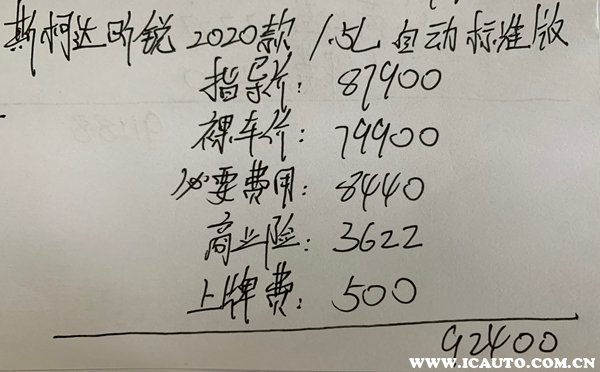 斯柯达昕锐 2020款 1.5L 自动标准版
指导价: 87900
裸车价: 79900
必要费用: 8440
商业险: 3622
上牌费: 500
92400
WWW.ICAUTO.COM.CN